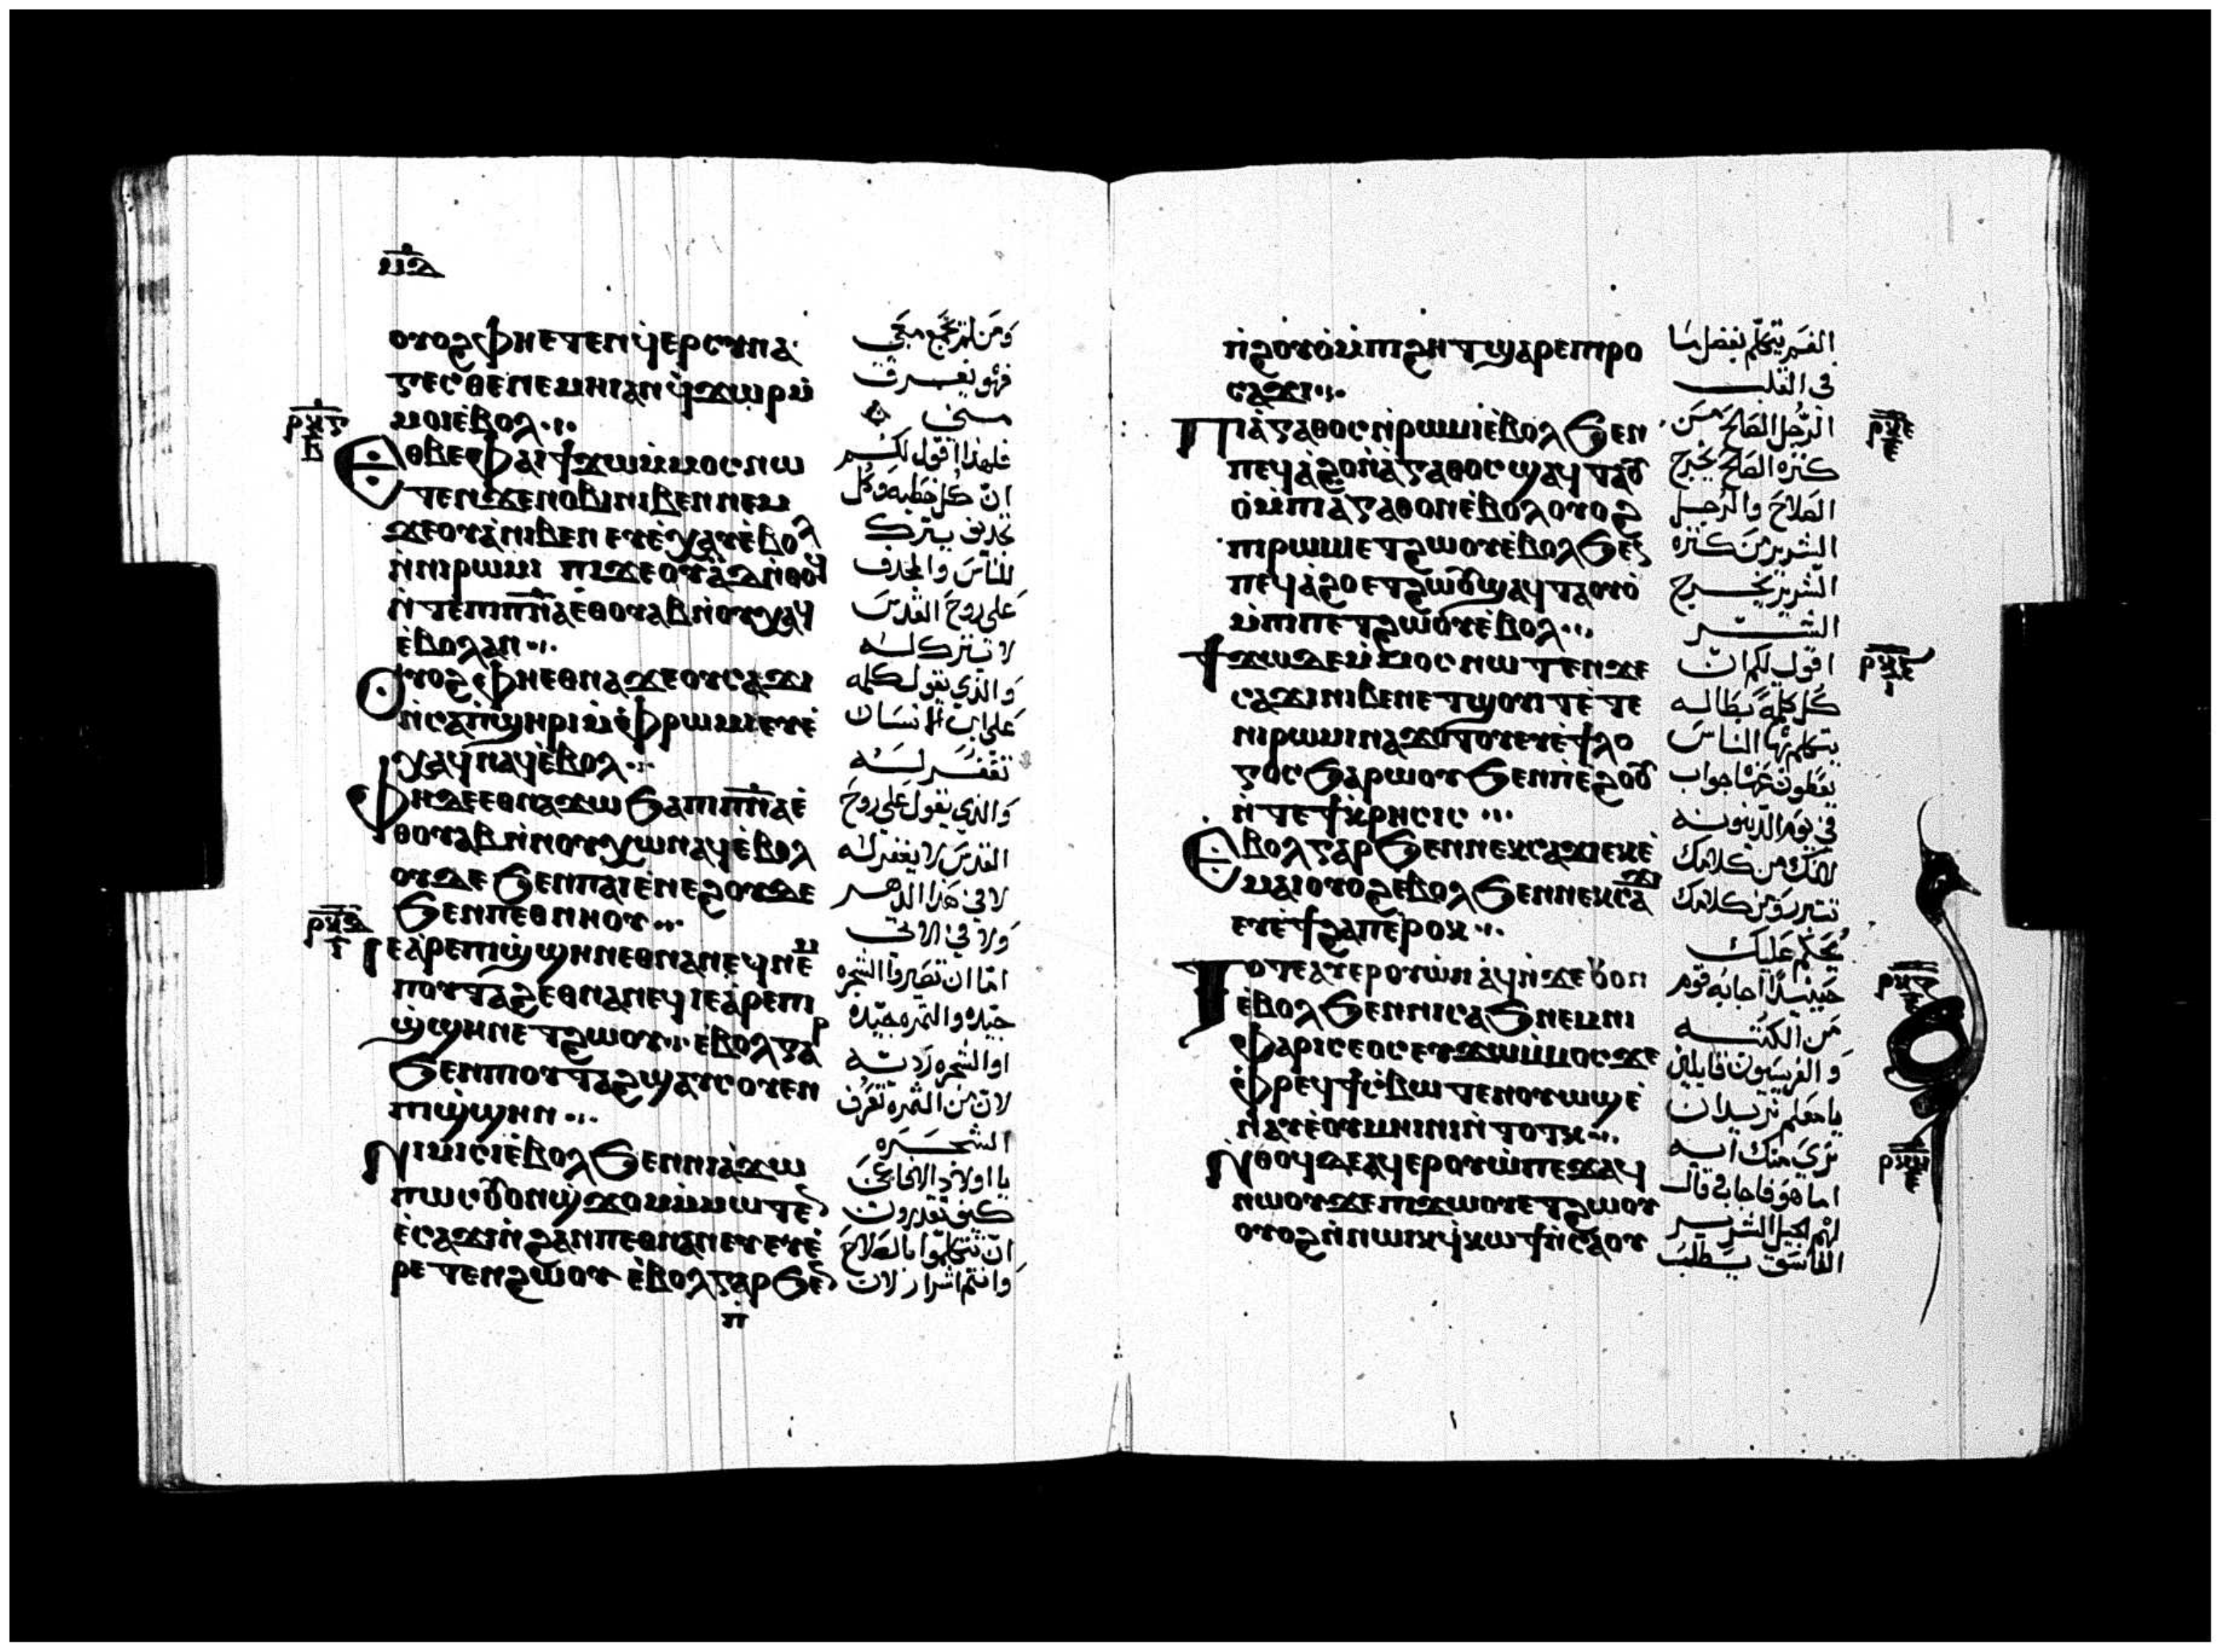 ⲙ̅ⲇ̅
ⲟⲩⲟϩ ⲫⲏⲉⲧⲉⲛϥ̇ⲉⲣⲥⲩⲛⲁ
ⲅⲉⲥⲑⲉ ⲛⲉⲙⲏⲓ ⲁⲛ ϥ̇ϫⲱⲣ ⲙ̇
ⲙⲟⲓ ⲉ̇ⲃⲟⲗ
ⲉⲑⲃⲉⲫⲁⲓ ϯϫⲱ ⲙ̇ⲙⲟⲥ ⲛⲱ
ⲧⲉⲛ ϫⲉ ⲛⲟⲃⲓ ⲛⲓⲃⲉⲛ ⲛⲉⲙ
ϫⲉⲟⲩⲁ̇ ⲛⲓⲃⲉⲛ ⲉⲩⲉ̇ⲭⲁⲩ ⲉ̇ⲃⲟⲗ
ⲛ̇ⲛⲓⲣⲱⲙⲓ ⲡⲓϫⲉⲟⲩⲁ̇ ⲇⲉ ⲛ̇ⲑⲟϥ
ⲛ̇ⲧⲉ ⲡⲓⲡ̅ⲛ̅ⲁ̅ ⲉⲑⲟⲩⲁⲃ ⲛ̇ⲛⲟⲩⲭⲁϥ
ⲉ̇ⲃⲟⲗ ⲁⲛ
ⲟⲩⲟϩ ⲫⲏⲉⲑⲛⲁϫⲉ ⲟⲩⲥⲁϫⲓ
ⲛ̇ⲥⲁ ⲡ̇ϣⲏⲣⲓ ⲙ̇ⲫⲣⲱⲙⲓ ⲉⲩⲉ̇
ⲭⲁϥ ⲛⲁϥ ⲉ̇ⲃⲟⲗ
ⲫⲏ ⲇⲉ ⲉⲑⲛⲁϫⲱ ϧⲁ ⲡⲓⲡ̅ⲛ̅ⲁ̅ ⲉ̇
ⲑⲟⲩⲁⲃ ⲛ̇ⲛⲟⲩⲭⲱ ⲛⲁϥ ⲉ̇ⲃⲟⲗ
ⲟⲩⲇⲉ ϧⲉⲛ ⲡⲁⲓⲉ̇ⲛⲉϩ ⲟⲩⲇⲉ
ϧⲉⲛ ⲡⲉⲑⲛⲏⲟⲩ
ⲓⲉ ⲁ̇ⲣⲉ ⲡⲓϣ̇ϣⲏⲛ ⲉⲑⲛⲁⲛⲉϥ ⲛⲉⲙ
ⲡⲟⲩⲧⲁϩ ⲉⲑⲛⲁⲛⲉϥ ⲓⲉ ⲁ̇ⲣⲉ ⲡⲓ
ϣ̇ϣⲏⲛ ⲉⲧϩⲱⲟⲩ ⲉ̇ⲃⲟⲗ ⲅⲁⲣ
ϧⲉⲛ ⲡⲟⲩⲧⲁϩ ϣⲁⲩⲥⲟⲩⲉⲛ
ⲡⲓϣ̇ϣⲏⲛ
ⲛⲓⲙⲓⲥⲓ ⲉ̇ⲃⲟⲗ ϧⲉⲛ ⲛⲓⲁ̇ϫⲱ
ⲡⲱⲥ ⲟⲩⲟⲛϣ̇ϫⲟⲙ ⲙ̇ⲙⲱⲧⲉⲛ
ⲉ̇ⲥⲁϫⲓ ⲛ̇ϩⲁⲛⲡⲉⲑⲛⲁⲛⲉⲩ ⲉⲣⲉ̇
ⲣⲉⲧⲉⲛϩⲱⲟⲩ ⲉ̇ⲃⲟⲗ ⲅⲁⲣ ϧⲉⲛ
ⲡ̇
ومن لم يجمع معي
فهو يفرق
مني
فلهذا اقول لكم
ان كل خطيه وكل
تجديف يترك
للناس والمجدف
على روح القدس
لا تترك له
والذي يقول كلمه
على ابن الانسان
تغفر له
والذي يقول على روح
القدس لا يغفر له
لا في هذا الدهر
ولا في الاتي
اما ان تصيروا الشجره
جيده والثمره جيده
او الشجره رديه
لان من الثمره تعرف
الشجره
يا اولاد الافاعي
كيف تقدرون
ان تتكلموا بالصلاح
وانتم اشرار لان
ⲣ̅ⲕ̅ⲅ̅
ⲃ
ⲣ̅ⲕ̅ⲇ̅
ⲛ̇ϩⲟⲩⲟ̇ ⲙ̇ⲡⲓϩⲏⲧ ϣⲁⲣⲉ ⲡⲓⲣⲟ
ⲥⲁϫⲓ
ⲡⲓⲁ̇ⲅⲁⲑⲟⲥ ⲛ̇ⲣⲱⲙⲓ ⲉ̇ⲃⲟⲗ ϧⲉⲛ
ⲡⲉϥⲁ̇ϩⲟ ⲛ̇ⲁ̇ⲅⲁⲑⲟⲥ ϣⲁϥⲧⲁⲟⲩ
ⲟ̇ ⲙ̇ⲡⲓⲁ̇ⲅⲁⲑⲟⲛ ⲉ̇ⲃⲟⲗ ⲟⲩⲟϩ
ⲡⲓⲣⲱⲙⲓ ⲉⲧϩⲱⲟⲩ ⲉ̇ⲃⲟⲗ ϧⲉⲛ
ⲡⲉϥⲁ̇ϩⲟ ⲉⲧϩⲱⲟⲩ ϣⲁϥⲧⲁⲟⲩⲟ̇
ⲙ̇ⲡⲓⲡⲉⲧϩⲱⲟⲩ ⲉ̇ⲃⲟⲗ
ϯϫⲱ ⲇⲉ ⲙ̇ⲙⲟⲥ ⲛⲱⲧⲉⲛ ϫⲉ
ⲥⲁϫⲓ ⲛⲓⲃⲉⲛ ⲉⲧϣⲟⲩⲓⲧ ⲉ̇ⲧⲉ
ⲛⲓⲣⲱⲙⲓ ⲛⲁϫⲟⲧⲟⲩ ⲉⲩⲉ̇ϯⲗⲟ
ⲅⲟⲥ ϧⲁⲣⲱⲟⲩ ϧⲉⲛ ⲡⲉ̇ϩⲟⲟⲩ
ⲛ̇ⲧⲉ ϯⲕ̇ⲣⲏⲥⲓⲥ
ⲉⲃⲟⲗ ⲅⲁⲣ ϧⲉⲛ ⲛⲉⲕⲥⲁϫⲓ ⲉⲕⲉ̇
ⲙⲁⲓⲟ ⲟⲩⲟϩ ⲉⲃⲟⲗ ϧⲉⲛ ⲛⲉⲕⲥⲁϫⲓ
ⲉⲩⲉ̇ϯϩⲁⲡ ⲉ̇ⲣⲟⲕ
ⲧⲟⲧⲉ ⲁⲩⲉⲣⲟⲩⲱ̇ ⲛⲁϥ ⲛ̇ϫⲉ ⲟⲩⲟⲛ
ⲉ̇ⲃⲟⲗ ϧⲉⲛ ⲛⲓⲥⲁϧ ⲛⲉⲙ ⲛⲓ
ⲫⲁⲣⲓⲥⲉⲟⲥ ⲉⲩϫⲱ ⲙ̇ⲙⲟⲥ ϫⲉ
ⲫ̇ⲣⲉϥϯⲥ̇ⲃⲱ ⲧⲉⲛⲟⲩⲱϣ ⲉ̇
ⲛⲁⲩ ⲉ̇ⲟⲩⲙⲏⲓⲛⲓ ⲛ̇ⲧⲟⲧⲕ
ⲛⲑⲟϥ ⲇⲉ ⲁϥⲉⲣⲟⲩⲱ̇ ⲡⲉϫⲁϥ
ⲛⲱⲟⲩ ϫⲉ ⲡⲓϫⲱⲟⲩ ⲉⲧϩⲱⲟⲩ
ⲟⲩⲟϩ ⲛ̇ⲛⲱⲓⲕ ϥ̇ⲕⲱϯ ⲛ̇ⲥⲁ ⲟⲩ
الفم يتكلم بفضل ما
في القلب
الرجل الصالح من
كنزه الصالح يخرج
الصلاح والرجل
الشرير من كنزه
الشرير يخرج
الشر
اقول لكم ان
كل كلمة بطاله
يتكلم بها الناس
يعطون عنها جواب
في يوم الدينونه
لانك من كلامك
تتبرر ومن كلامك
يحكم عليك
حينيذ اجابه قوم
من الكتبه
والفريسيون قايلين
يا معلم نريد ان
نري منك ايه
اما هو فاجاب قال
لهم الجيل الشرير
الفاسق يطلب
ⲣ̅ⲕ̅ⲉ̅
ⲣ̅ⲕ̅ⲍ̅
ⲣ̅ⲕ̅ⲏ̅